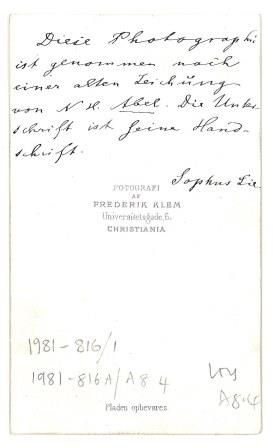 Diese Photographi
ist genommen nach
einer alten Zeichung
von N H. Abel. Die Unter
schrift ist seine Hand-
schrift.
Sophus Lie
FOTOGRAFI
AF
FREDERIK KLEM
Universitetsgade, 6.
CHRISTIANIA
1981-816/1
1981-816A/A8 4
A8.4
Pladen opbevares.